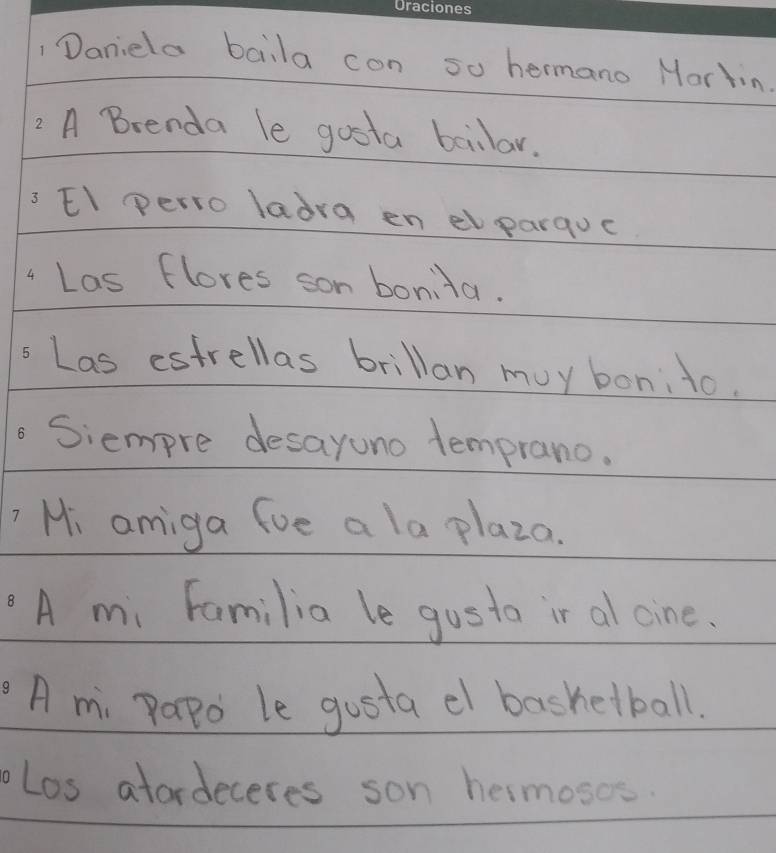 Oraciones
1 Daniela baila con su hermano Martin.
2 A Brenda le gusta bailar.
3 El perro ladra en el parque
4 Las flores son bonita.
5 Las estrellas brillan muy bonito.
6 Siempre desayuno temprano.
7 Mi amiga fue a la plaza.
8 A mi Familia le gusta ir al cine.
9 A mi papá le gusta el basketball.
10 Los atardeceres son hermosos.